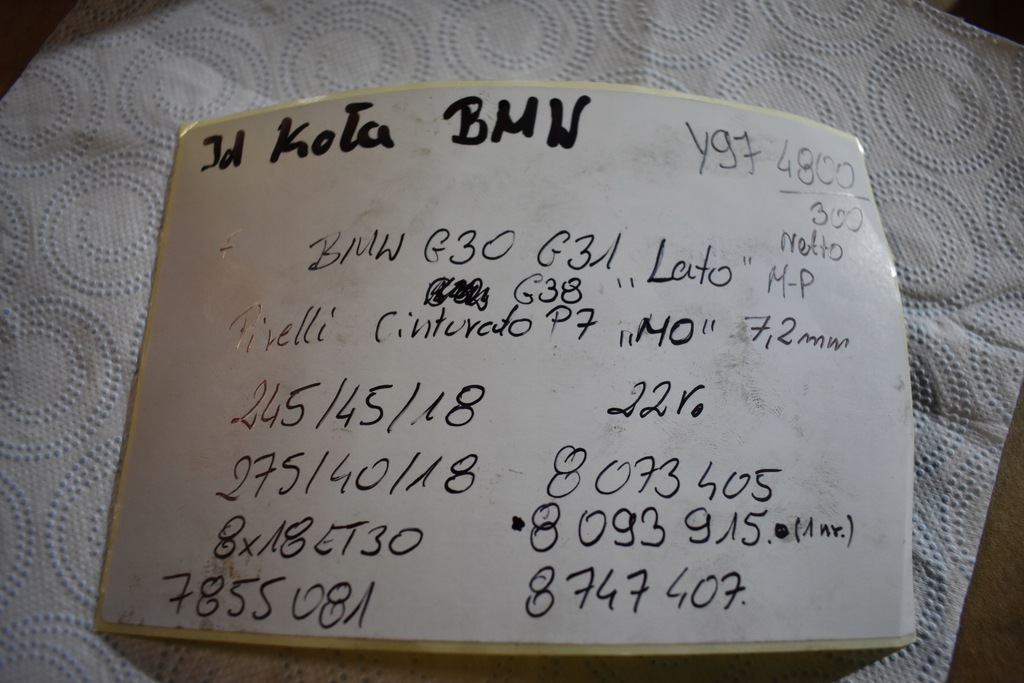 Id Koła BMW
Y97 4800
300
Netto
BMW G30 G31 „Lato" M-P
G38
Pirelli Cinturato P7 „MO" 7,2mm
245/45/18 22r.
275/40/18 8 073 405
8x18 ET30 •8 093 915.•(1 nr.)
7855 081 8 747 407.